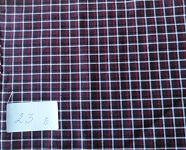 23 B